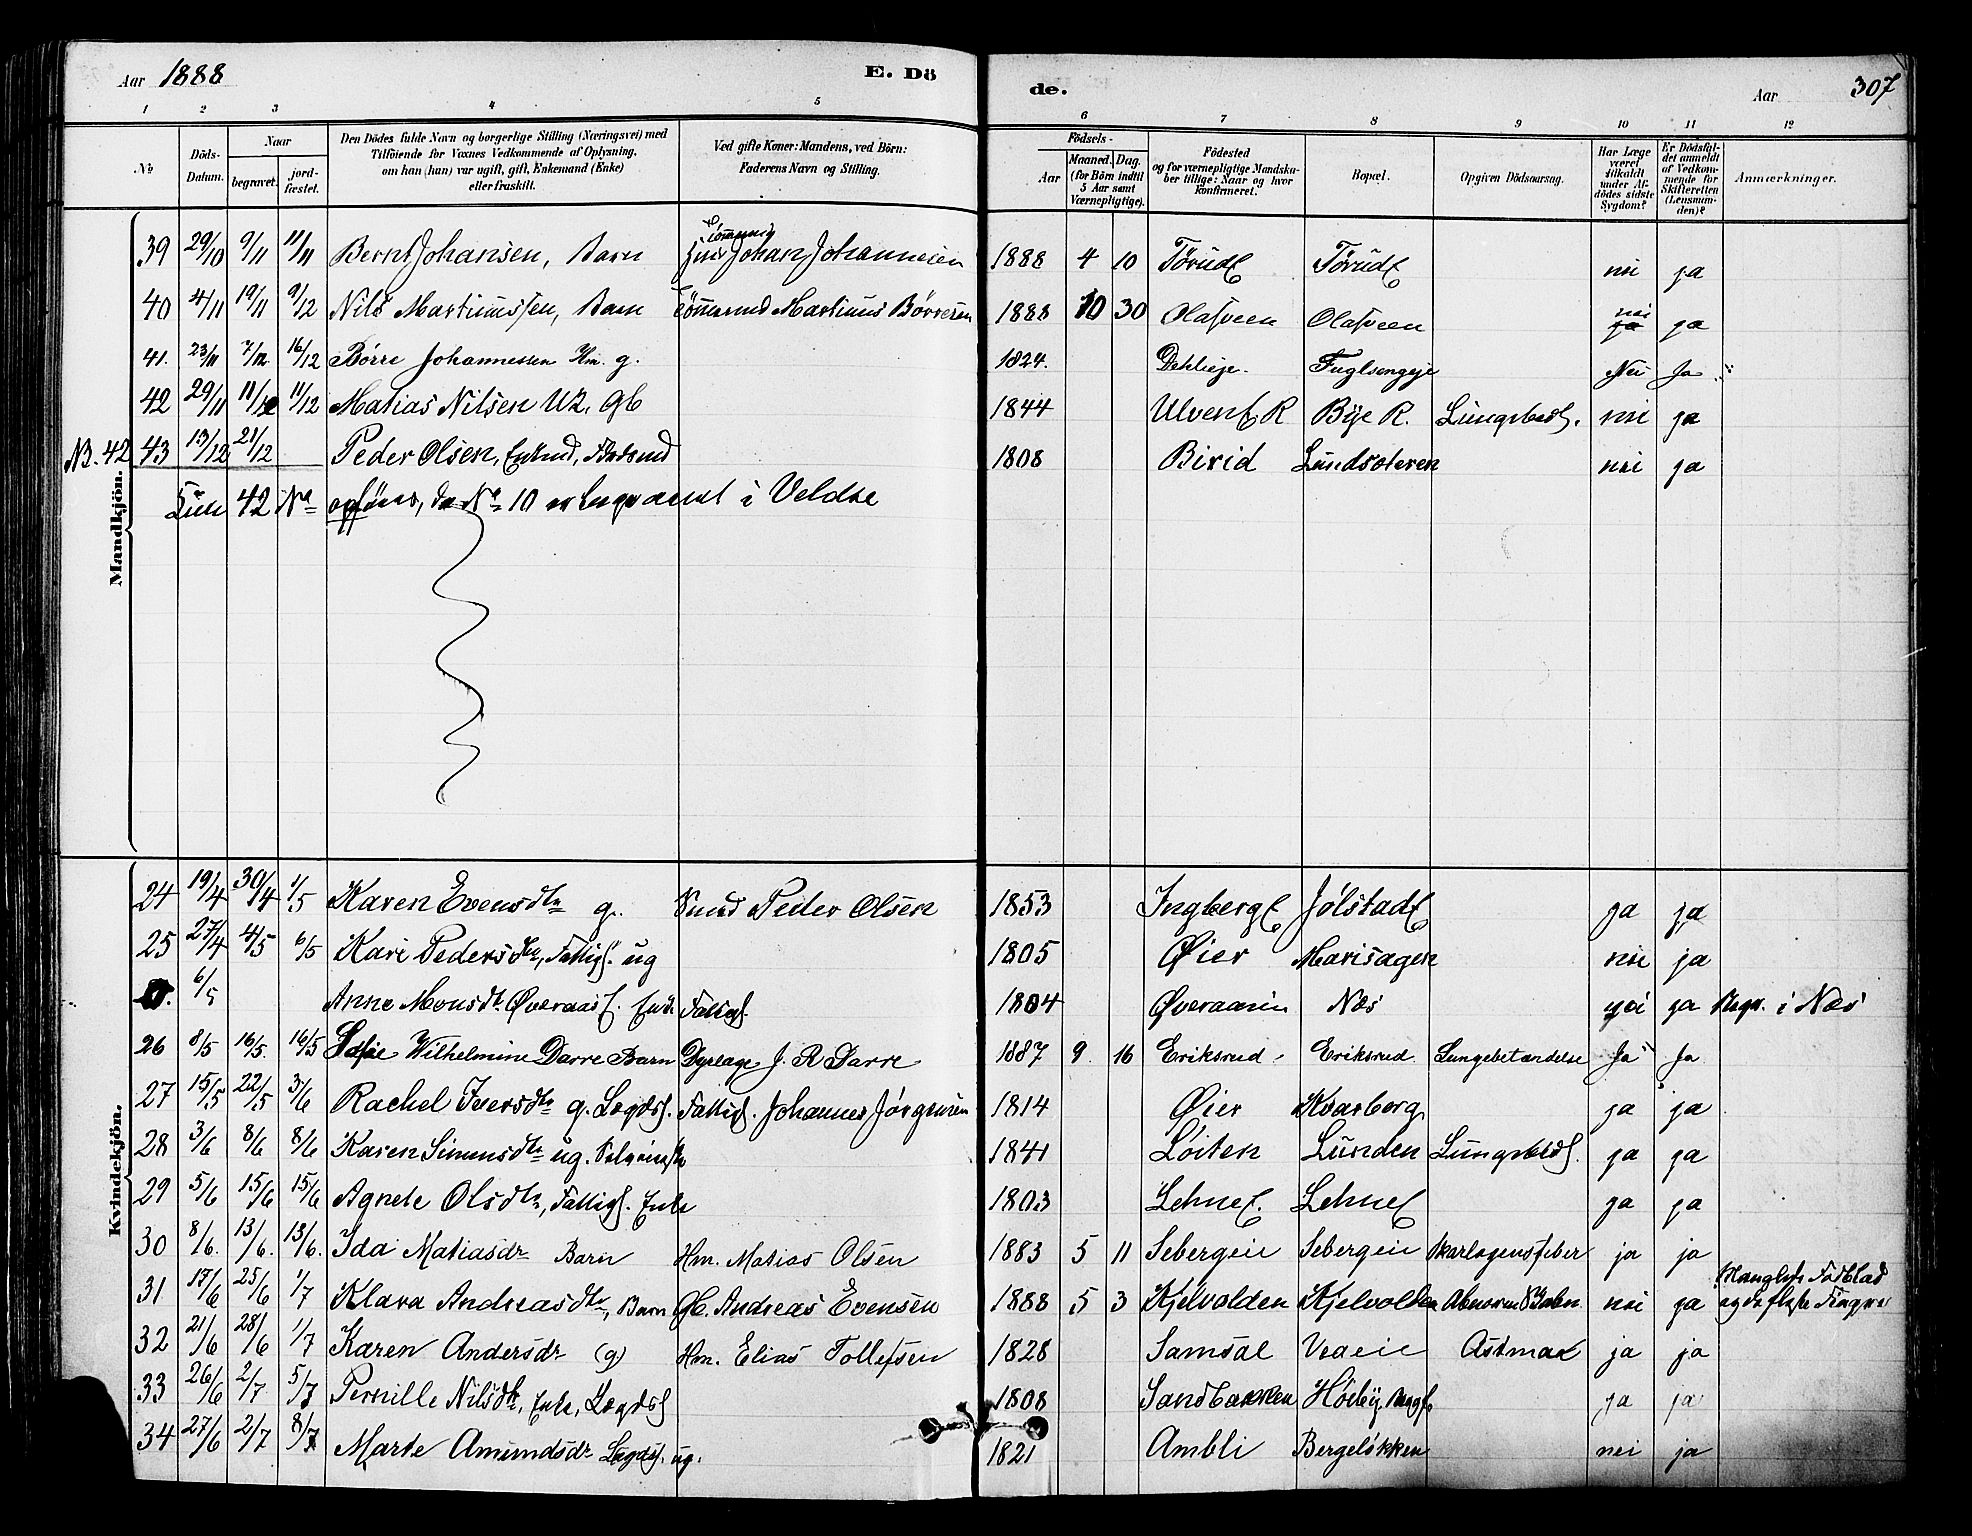 Aar 1888 E. Dö
de. Aar 307
1 2 3 4 5 6 7 8 9 10 11 12
No. Döds-Datum. Naar begravet. jordfæstet. Den Dödes fulde Navn og borgerlige Stilling (Næringsvei) med Tilföiende for Voxnes Vedkommende af Oplysning, om han (hun) var ugift, gift, Enkemand (Enke) eller fraskilt. Ved gifte Koner: Mandens, ved Börn: Faderens Navn og Stilling. Födsels- Aar Maaned. Dag. (for Börn indtil 5 Aar samt Værnepligtige). Födested og for værnepligtige Mandskaber tillige: Naar og hvor konfirmeret. Bopæl. Opgiven Dödsaarsag. Har Læge været tilkaldt under Afdödes sidste Sygdom? Er Dödsfaldet anmeldt af Vedkommende for Skifteretten (Lensmanden)? Anmærkninger.
Mandkjön.
39 29/10 9/11 11/11 Bernt Johansen, Barn Johan Johannesen 1888 4 10 Törud Törud nei ja
40 4/11 19/11 9/12 Nils Martinussen, Barn Tömmermd Martinus Börresen 1888 10 30 Olafveen Olafveen nei ja
41. 23/11 7/12 16/12 Börre Johannessen Hm. g. 1824. Dehlieje. Fuglsengeje Nei Ja
42 29/11 11/12 11/12 Matias Nilsen Uz, Gb 1844 Ulven R Bye R. Lungebet. nei ja
NB. 42 43 13/12 21/12 Peder Olsen, Enkmd, 1808 Birid Lundsoteren nei ja
42 No opföres, da No 10 er begravet i Veldre
Kvindekjön.
24 19/4 30/4 1/5 Karen Evensdtr g. Smed Peder Olsen 1853 Ingberg Jölstad ja ja
25 27/4 4/5 6/5 Kari Pedersdtr, Fattigl. ug 1805 Øier Marisagen nei ja
6/5 Anne Monsdtr Øveraas Enke Fattigl. 1804 Øveraasen Næs nei ja Begr. i Næs
26 8/5 16/5 16/5 Wilhelmine Darre Barn Dyrlæge J. R. Darre 1887 9 16 Eriksrud Eriksrud Lungebetændelse Ja Ja
27 15/5 22/5 3/6 Rachel Iversdtr g. Lægdsl. Fattigl. Johannes Jörgensen 1814 Øier Kvarberg ja ja
28 3/6 8/6 8/6 Karen Simensdtr ug. 1841 Löiten Lunden Lungebet. ja ja
29 5/6 15/6 15/6 Agnete Olsdtr, Fattigl. Enke 1803 Lehne Lehne ja ja
30 8/6. 13/6. 13/6. Ida Matiasdr Barn Hm. Matias Olsen 1883 5 11 Sebergeie Sebergeie Skarlagensfeber ja ja
31 17/6 25/6 1/7 Klara Andreasdtr, Barn Gb. Andreas Evensen 1888 5 3 Kjelvolden Kjelvolden nei ja
32 21/6 28/6 1/7 Karen Andersdr (g) Hm. Elias Tollefsen 1828 Samsal Veaeie Astma ja ja
33 26/6 2/7 5/7 Pernille Nilsdtr, Enke, Lægdsl 1808 Sandbakken Höiby ja ja
34 27/6 2/7 8/7 Marte Amundsdr Lægdsl. ug. 1821 Ambli Bergelökken nei ja